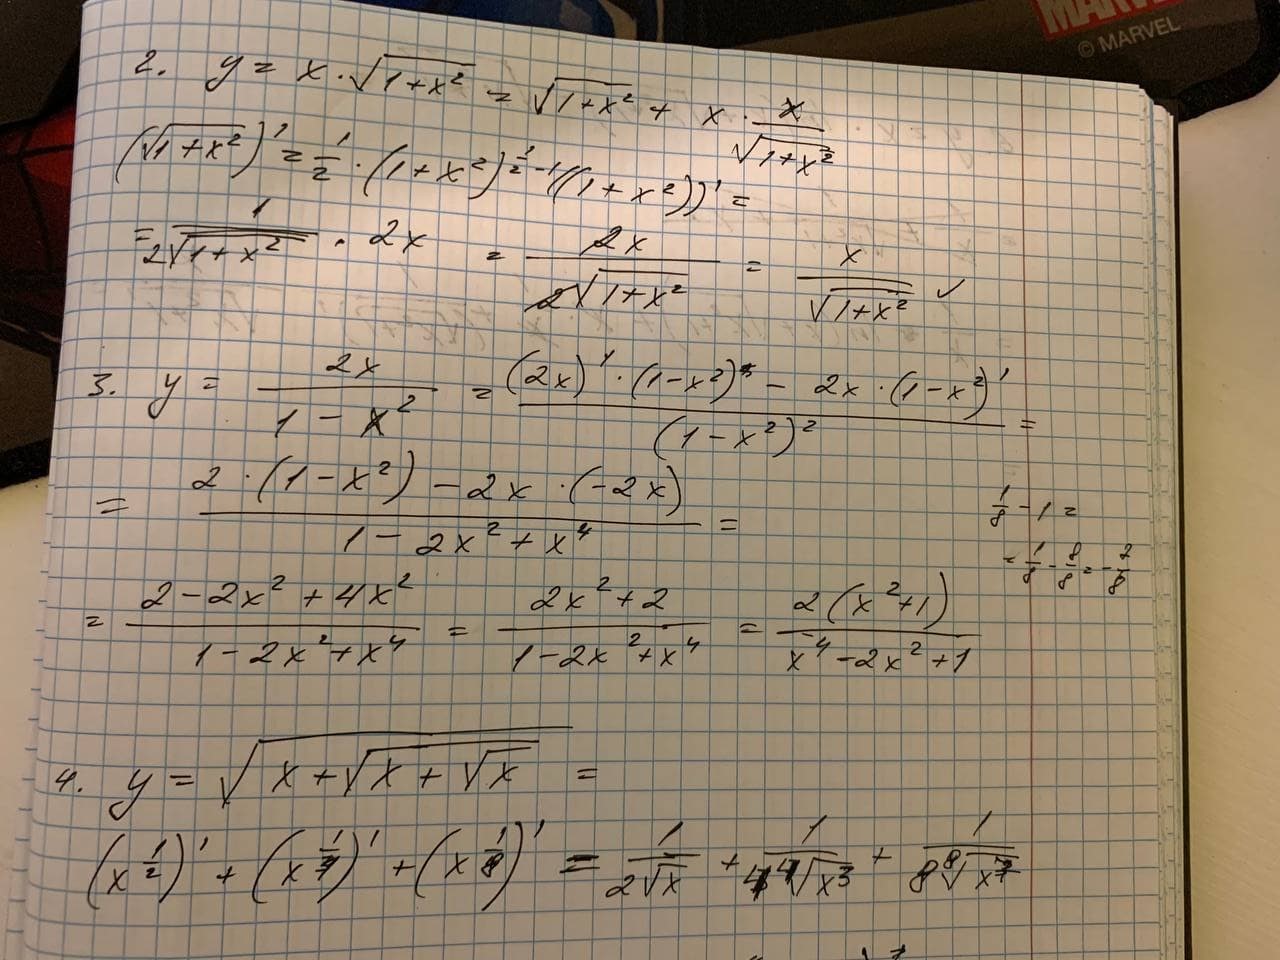 MARVEL
© MARVEL
2. y = x · √(1+x²) = √(1+x²) + x · x/√(1+x²)
(√(1+x²))' = 1/2 · (1+x²)^(1/2 -1) ((1+x²))' =
= 1/(2√(1+x²)) · 2x = 2x/(2√(1+x²)) = x/√(1+x²) ✓
3. y = 2x/(1-x²) = ((2x)' · (1-x²) - 2x · (1-x²)')/(1-x²)² =
= (2 · (1-x²) - 2x · (-2x))/(1-2x²+x⁴) =
1/8 - 1 =
= 1/8 - 8/8 = -7/8
= (2-2x²+4x²)/(1-2x²+x⁴) = (2x²+2)/(1-2x²+x⁴) = 2(x²+1)/(x⁴-2x²+1)
4. y = √(x+√(x+√x)) =
(x^(1/2))' + (x^(1/4))' + (x^(1/8))' = 1/(2√x) + 1/(4 ⁴√x³) + 1/(8 ⁸√x⁷)